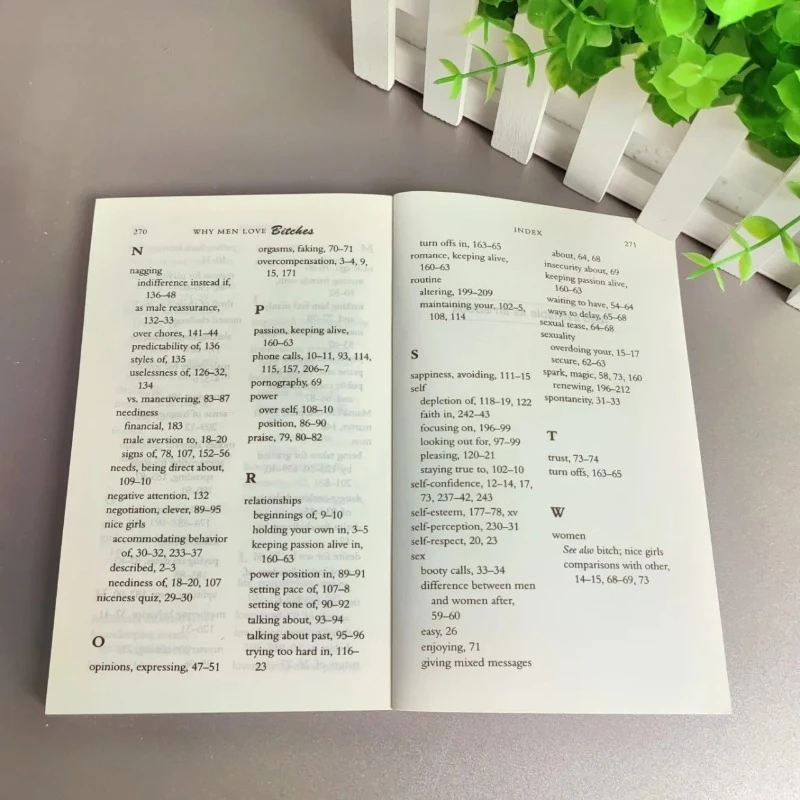 270 WHY MEN LOVE Bitches
N
nagging
indifference instead if,
136–48
as male reassurance,
132–33
over chores, 141–44
predictability of, 136
styles of, 135
uselessness of, 126–32,
134
vs. maneuvering, 83–87
neediness
financial, 183
male aversion to, 18–20
signs of, 78, 107, 152–56
needs, being direct about,
109–10
negative attention, 132
negotiation, clever, 89–95
nice girls
accommodating behavior
of, 30–32, 233–37
described, 2–3
neediness of, 18–20, 107
niceness quiz, 29–30
O
opinions, expressing, 47–51
orgasms, faking, 70–71
overcompensation, 3–4, 9,
15, 171
P
passion, keeping alive,
160–63
phone calls, 10–11, 93, 114,
115, 157, 206–7
pornography, 69
power
over self, 108–10
position, 86–90
praise, 79, 80–82
R
relationships
beginnings of, 9–10
holding your own in, 3–5
keeping passion alive in,
160–63
power position in, 89–91
setting pace of, 107–8
setting tone of, 90–92
talking about, 93–94
talking about past, 95–96
trying too hard in, 116–
23
INDEX 271
turn offs in, 163–65
romance, keeping alive,
160–63
routine
altering, 199–209
maintaining your, 102–5,
108, 114
S
sappiness, avoiding, 111–15
self
depletion of, 118–19, 122
faith in, 242–43
focusing on, 196–99
looking out for, 97–99
pleasing, 120–21
staying true to, 102–10
self-confidence, 12–14, 17,
73, 237–42, 243
self-esteem, 177–78, xv
self-perception, 230–31
self-respect, 20, 23
sex
booty calls, 33–34
difference between men
and women after,
59–60
easy, 26
enjoying, 71
giving mixed messages
about, 64, 68
insecurity about, 69
keeping passion alive,
160–63
waiting to have, 54–64
ways to delay, 65–68
sexual tease, 64–68
sexuality
overdoing your, 15–17
secure, 62–63
spark, magic, 58, 73, 160
renewing, 196–212
spontaneity, 31–33
T
trust, 73–74
turn offs, 163–65
W
women
See also bitch; nice girls
comparisons with other,
14–15, 68–69, 73